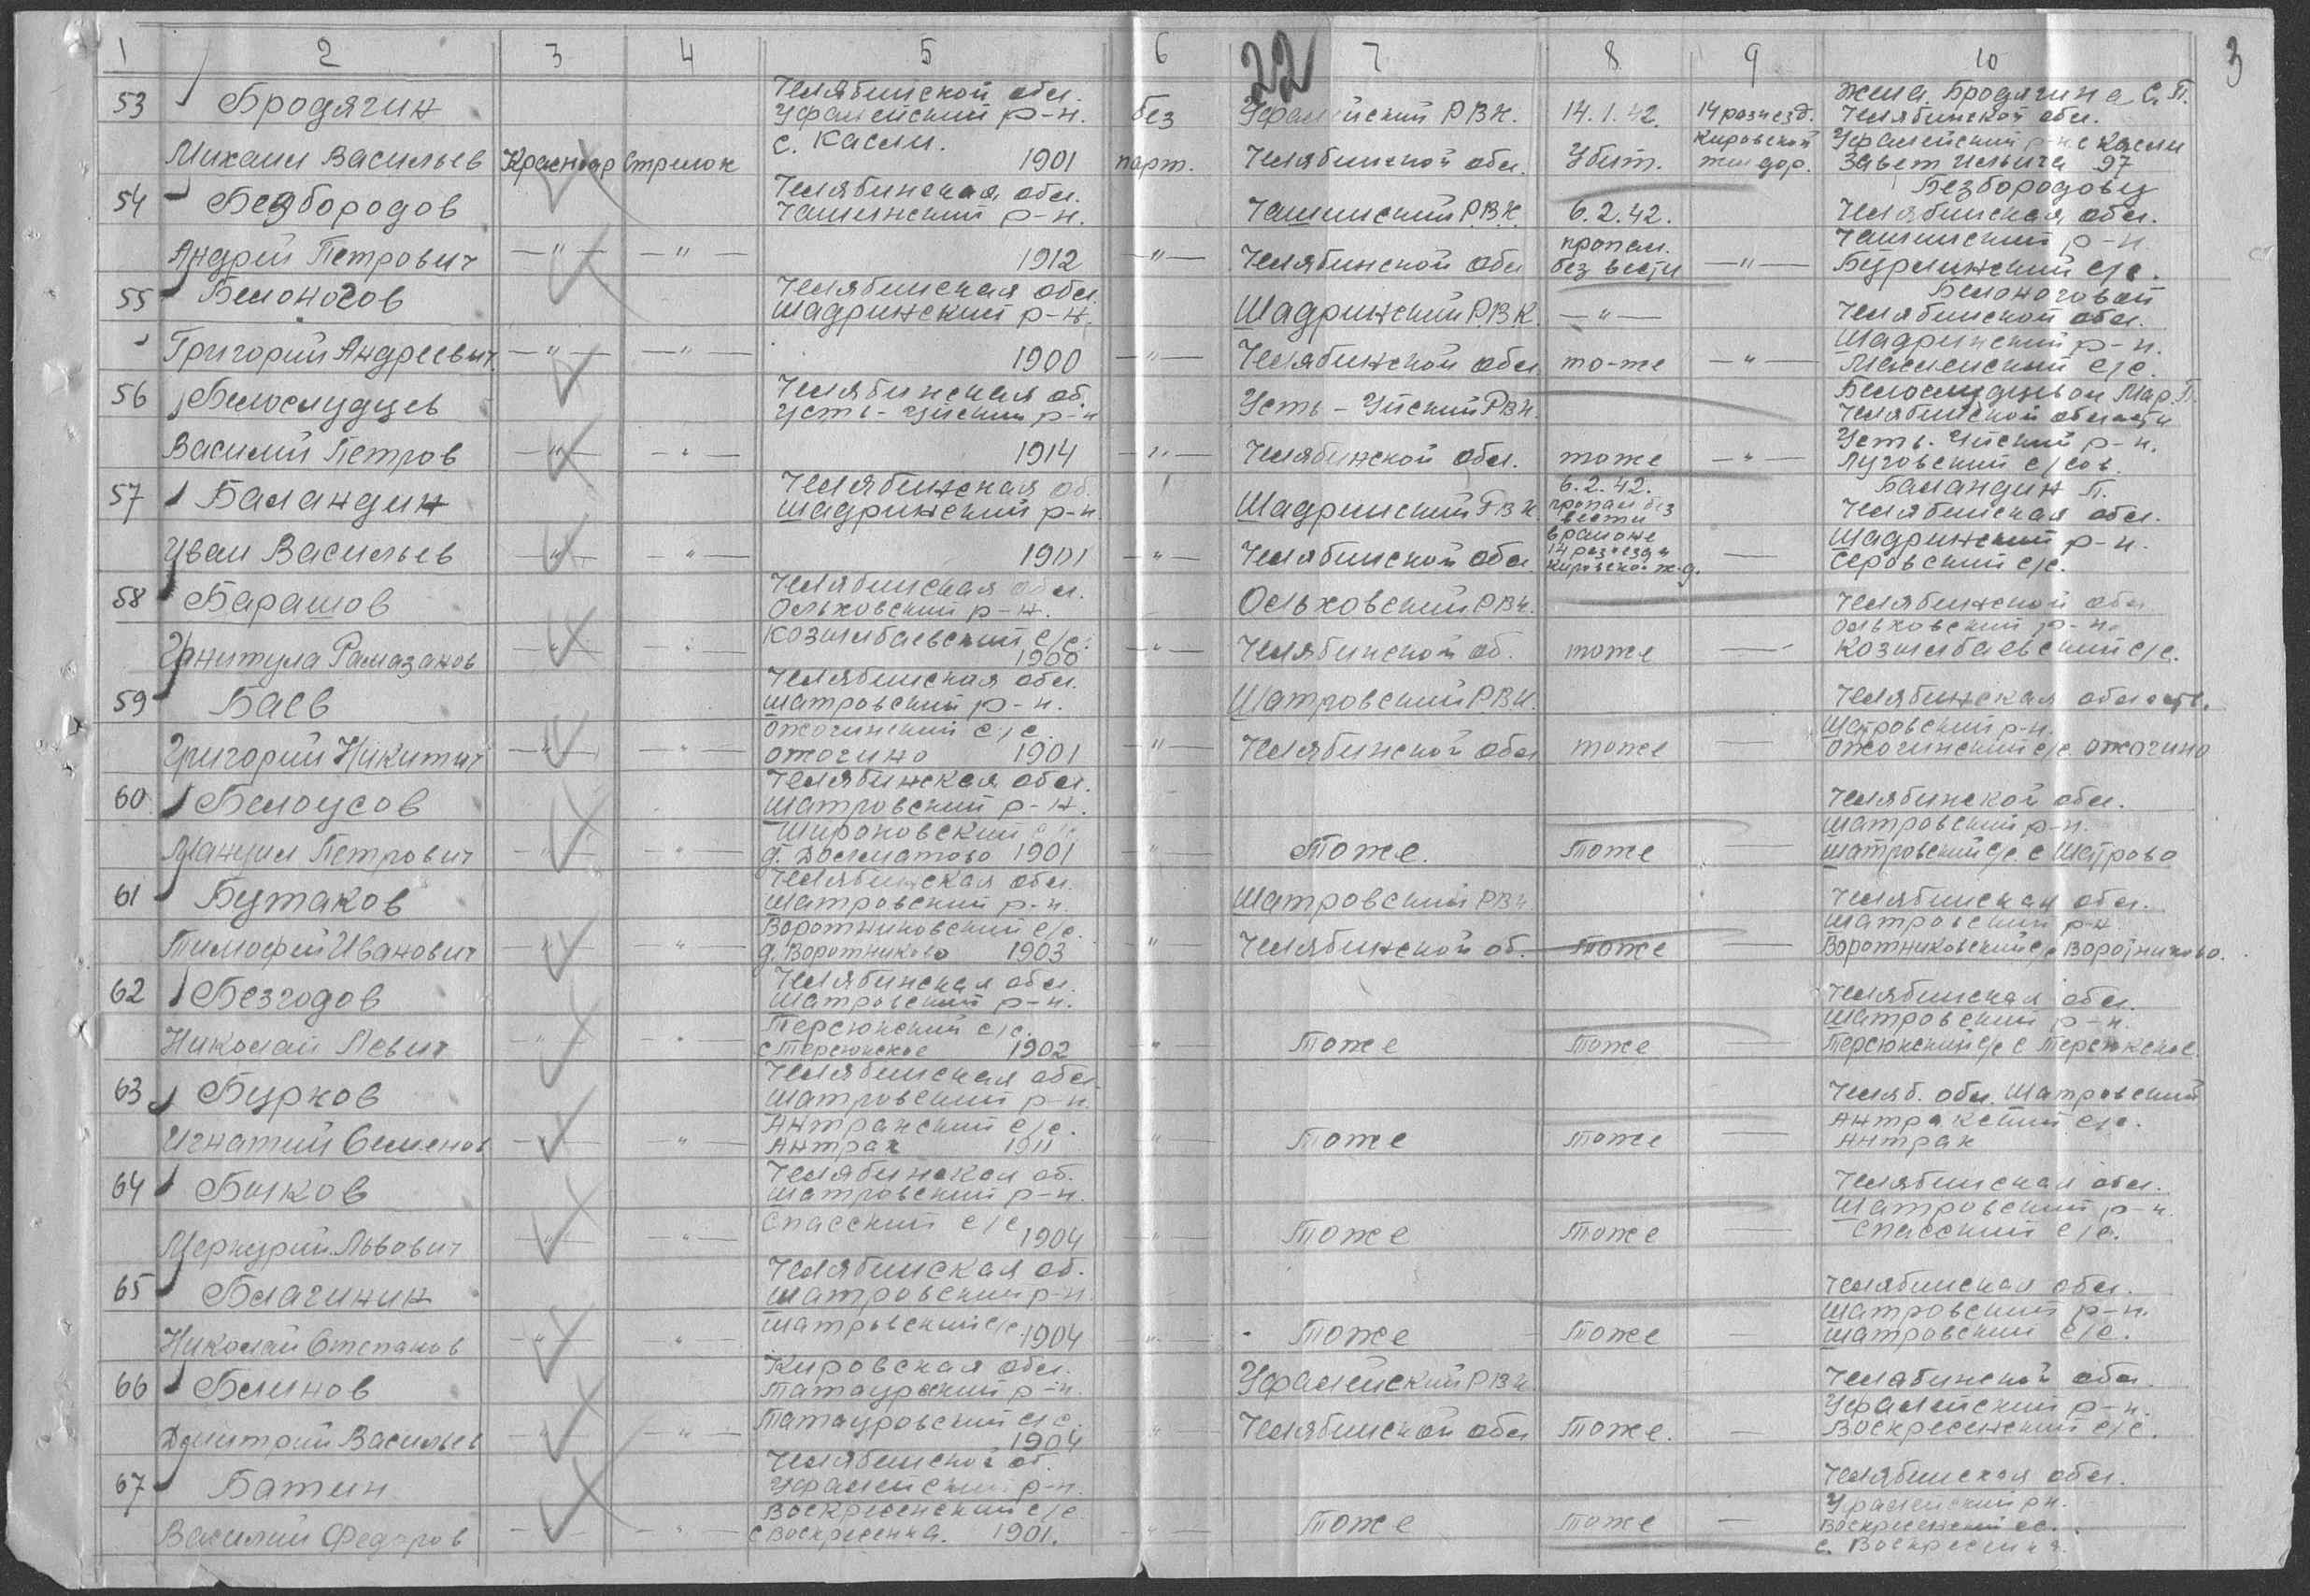 1 2 3 4 5 6 22 7 8 9 10 3
53 Бродягин
Михаил Васильев
Красноар Стрелок
Челябинской обл.
Уфалейский р-н.
с. Касли.
1901
без
парт.
Уфалейский РВК.
Челябинской обл.
14.1.42.
Убит.
14 разъезд.
Кировской
жел дор.
Жена Бродягина С.П.
Челябинской обл.
Уфалейский р-н с Касли
Завет Ильича 97
54 Безбородов
Андрей Петрович
—"— —"—
Челябинская обл.
Чашинский р-н.
1912
—"—
Чашинский РВК
Челябинской обл
6.2.42.
пропал.
без вести
—"—
Безбородовы
Челябинская обл.
Чашинский р-н.
55 Белоногов
Григорий Андреевич.
—"— —"—
Челябинская обл.
Шадринский р-н.
1900
—"—
Шадринский Р.В.К.
Челябинской обл
—"—
то-же
—"—
Белоноговой
Челябинской обл.
Шадринский р-н.
с/с.
56 Белослудцев
Василий Петров
—"— —"—
Челябинская об.
Усть-Уйский р-н
1914
—"—
Усть-Уйский РВК.
Челябинской обл.
тоже
—"—
Белослудцевой Мар.П.
Челябинской области
Усть-Уйский р-н.
Луговский с/сов.
57 Баландин
Иван Васильев
—"— —"—
Челябинская об.
Шадринский р-н.
1901
—"—
Шадринский РВК
Челябинской обл
6.2.42.
пропал без
вести
в районе
14 разъезда
Кировской ж.д.
—
Баландин П.
Челябинская обл.
Шадринский р-н.
Серовский с/с.
58 Барашов
Рамазанов
—"— —"—
Челябинская обл.
Ольховский р-н.
Козылбаевский с/с.
1900
—"—
Ольховский РВК.
Челябинской об.
тоже
—
Челябинской обл
Ольховский р-н.
Козылбаевский с/с.
59 Баев
Григорий Никитич
—"— —"—
Челябинская обл.
Шатровский р-н.
Ожогинский с/с.
Ожогино 1901
—"—
Шатровский РВК.
Челябинской обл
тоже
—
Челябинская область.
Шатровский р-н.
Ожогинский с/с. Ожогино
60 Белоусов
Мануил Петрович
—"— —"—
Челябинская обл.
Шатровский р-н.
Широковский с/с
д. Далматово 1901
—"—
Тоже.
Тоже
—
Челябинской обл.
Шатровский р-н.
Шатровский с/с. с Шатрово
61 Бутаков
Тимофей Иванович
—"— —"—
Челябинская обл.
Шатровский р-н.
Воротниковский с/с.
д. Воротниково 1903
—"—
Шатровский РВК
Челябинской об.
Тоже
—
Челябинская обл.
Шатровский р-н.
Воротниковский с/с Воротниково.
62 Безгодов
Николай Левич
—"— —"—
Челябинская обл.
Шатровский р-н.
Терсюкский с/с.
с Терсюкское 1902
—"—
Тоже
Тоже
—
Челябинская обл.
Шатровский р-н.
Терсюкский с/с с Терсюкское.
63 Бурков
Игнатий Семенов
—"— —"—
Челябинская обл.
Шатровский р-н.
Антракский с/с.
Антрак 1911
—"—
Тоже
Тоже
—
Челяб. обл. Шатровский
Антракский с/с.
Антрак
64 Быков
Меркурий Львович
—"— —"—
Челябинская об.
Шатровский р-н.
Спасский с/с
1904
—"—
Тоже
Тоже
—
Челябинская обл.
Шатровский р-н.
Спасский с/с.
65 Благинин
Николай Степанов
—"— —"—
Челябинская об.
Шатровский р-н
Шатровский с/с.
1904
—"—
Тоже
Тоже
—
Челябинская обл.
Шатровский р-н.
Шатровский с/с.
66 Блинов
Дмитрий Васильев
—"— —"—
Кировская обл.
Татауровский с/с.
1904
—"—
Уфалейский РВК
Челябинской обл
Тоже.
—
Челябинской обл.
Уфалейский р-н.
Воскресенский с/с.
67 Батин
Василий Федоров
—"— —"—
Челябинской об.
Уфалейский р-н.
Воскресенский с/с
с Воскресенка. 1901.
—"—
Тоже
Тоже
—
Челябинская обл.
Уфалейский рн.
Воскресенский сс.
с. Воскресенка.